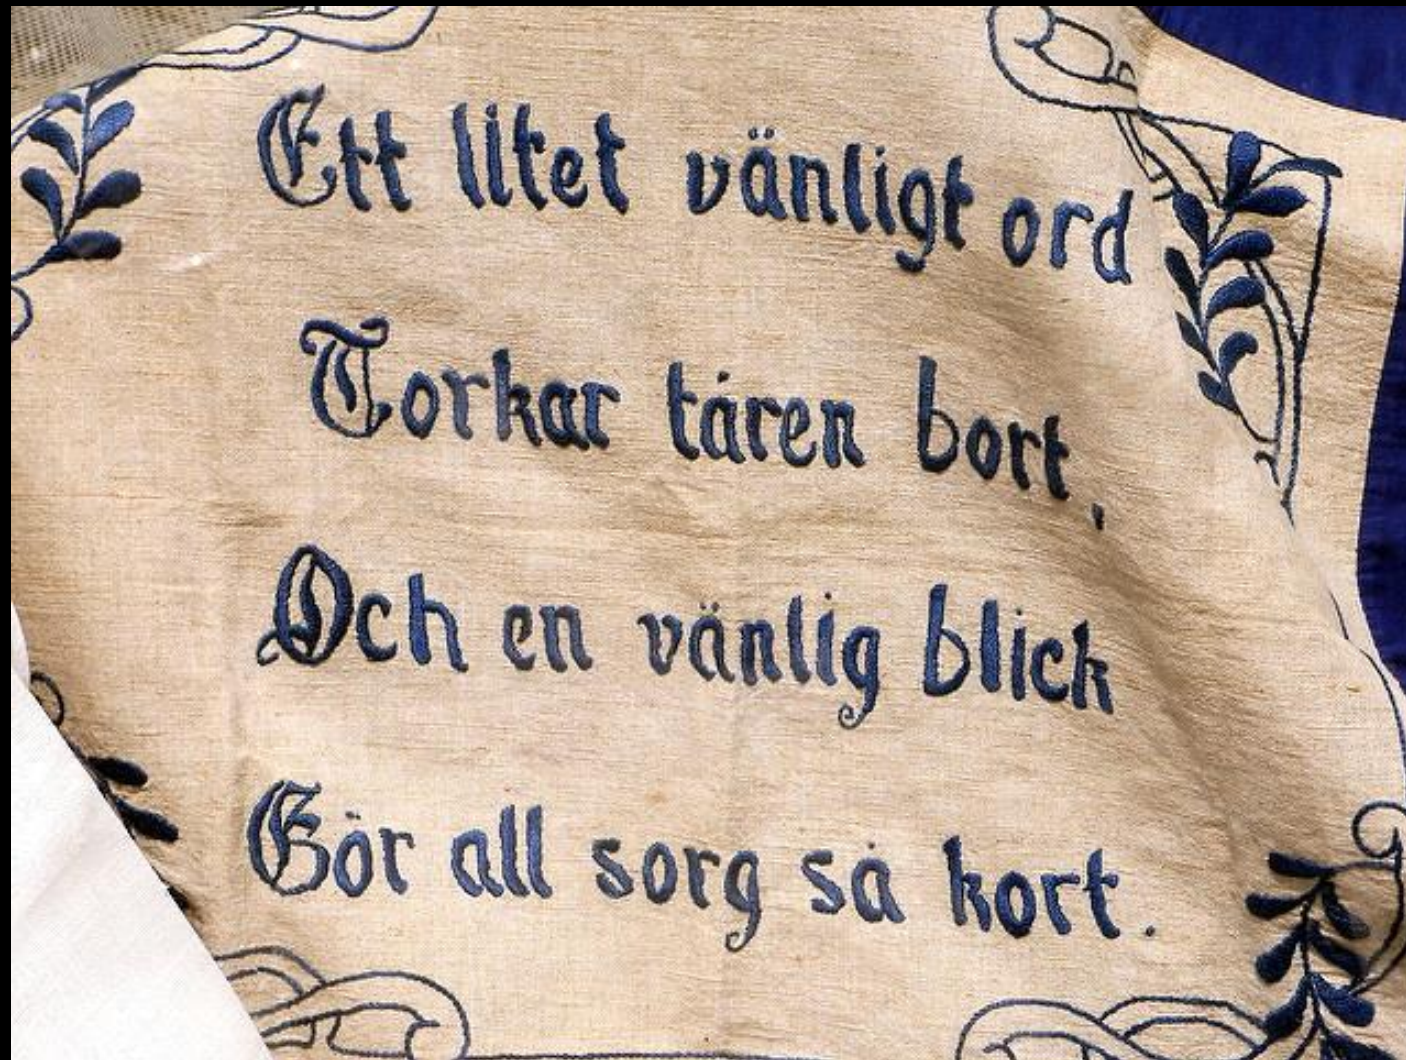 Ett litet vänligt ord
Torkar tåren bort,
Och en vänlig blick
Gör all sorg så kort.